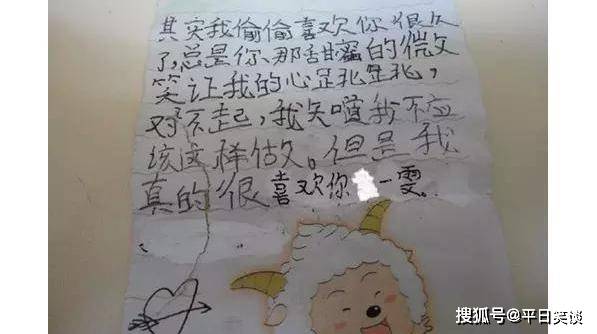 其实我偷偷喜欢你很久
了,总是你那甜蜜的微
笑让我的心跳
对不起,我知道我不应
该这样做。但是我
真的很喜欢你 一雯。
搜狐号@平日笑谈